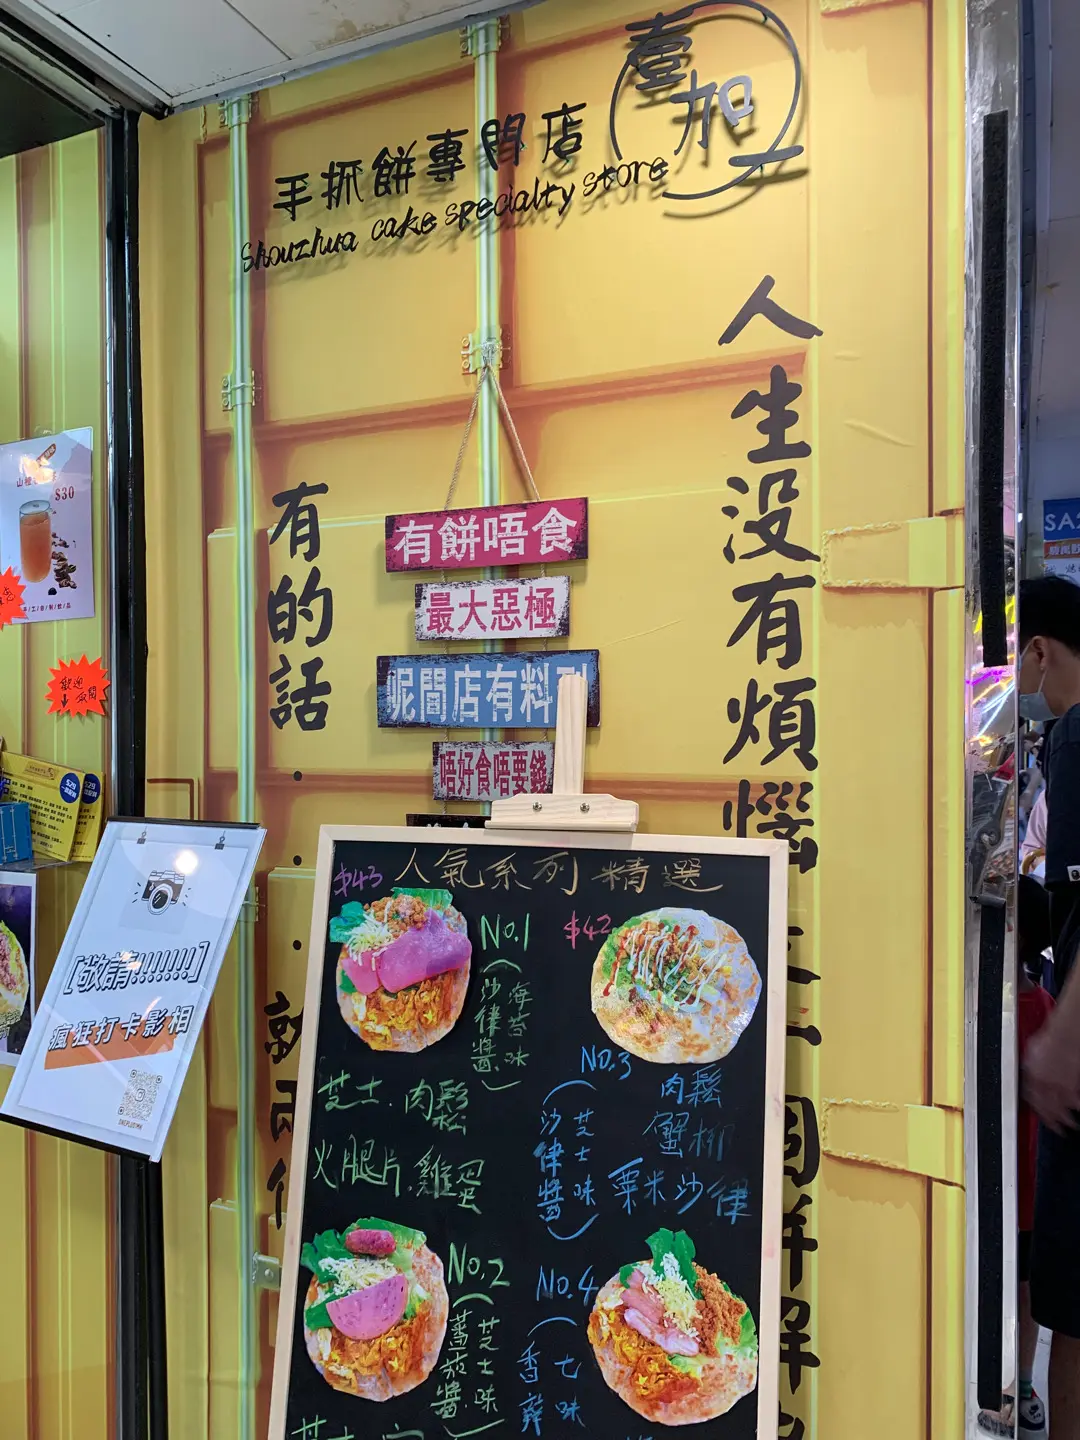 壹加
手抓餅專門店
Shouzhua cake specialty store
人生沒有煩惱
有的話......
有餅唔食
最大惡極
呢間店有料到
唔好食唔要錢
$30
歡迎
[敬請!!!!!!!]
瘋狂打卡影相
人氣系列精選
$43
NO.1
(沙律醬.海苔味)
芝士.肉鬆
火腿片.雞蛋
NO.2
(蕃茄醬.芝士味
$42
NO.3
(沙律醬芝士味)
肉鬆
蟹柳
粟米沙律
NO.4
(香辣七味
SA